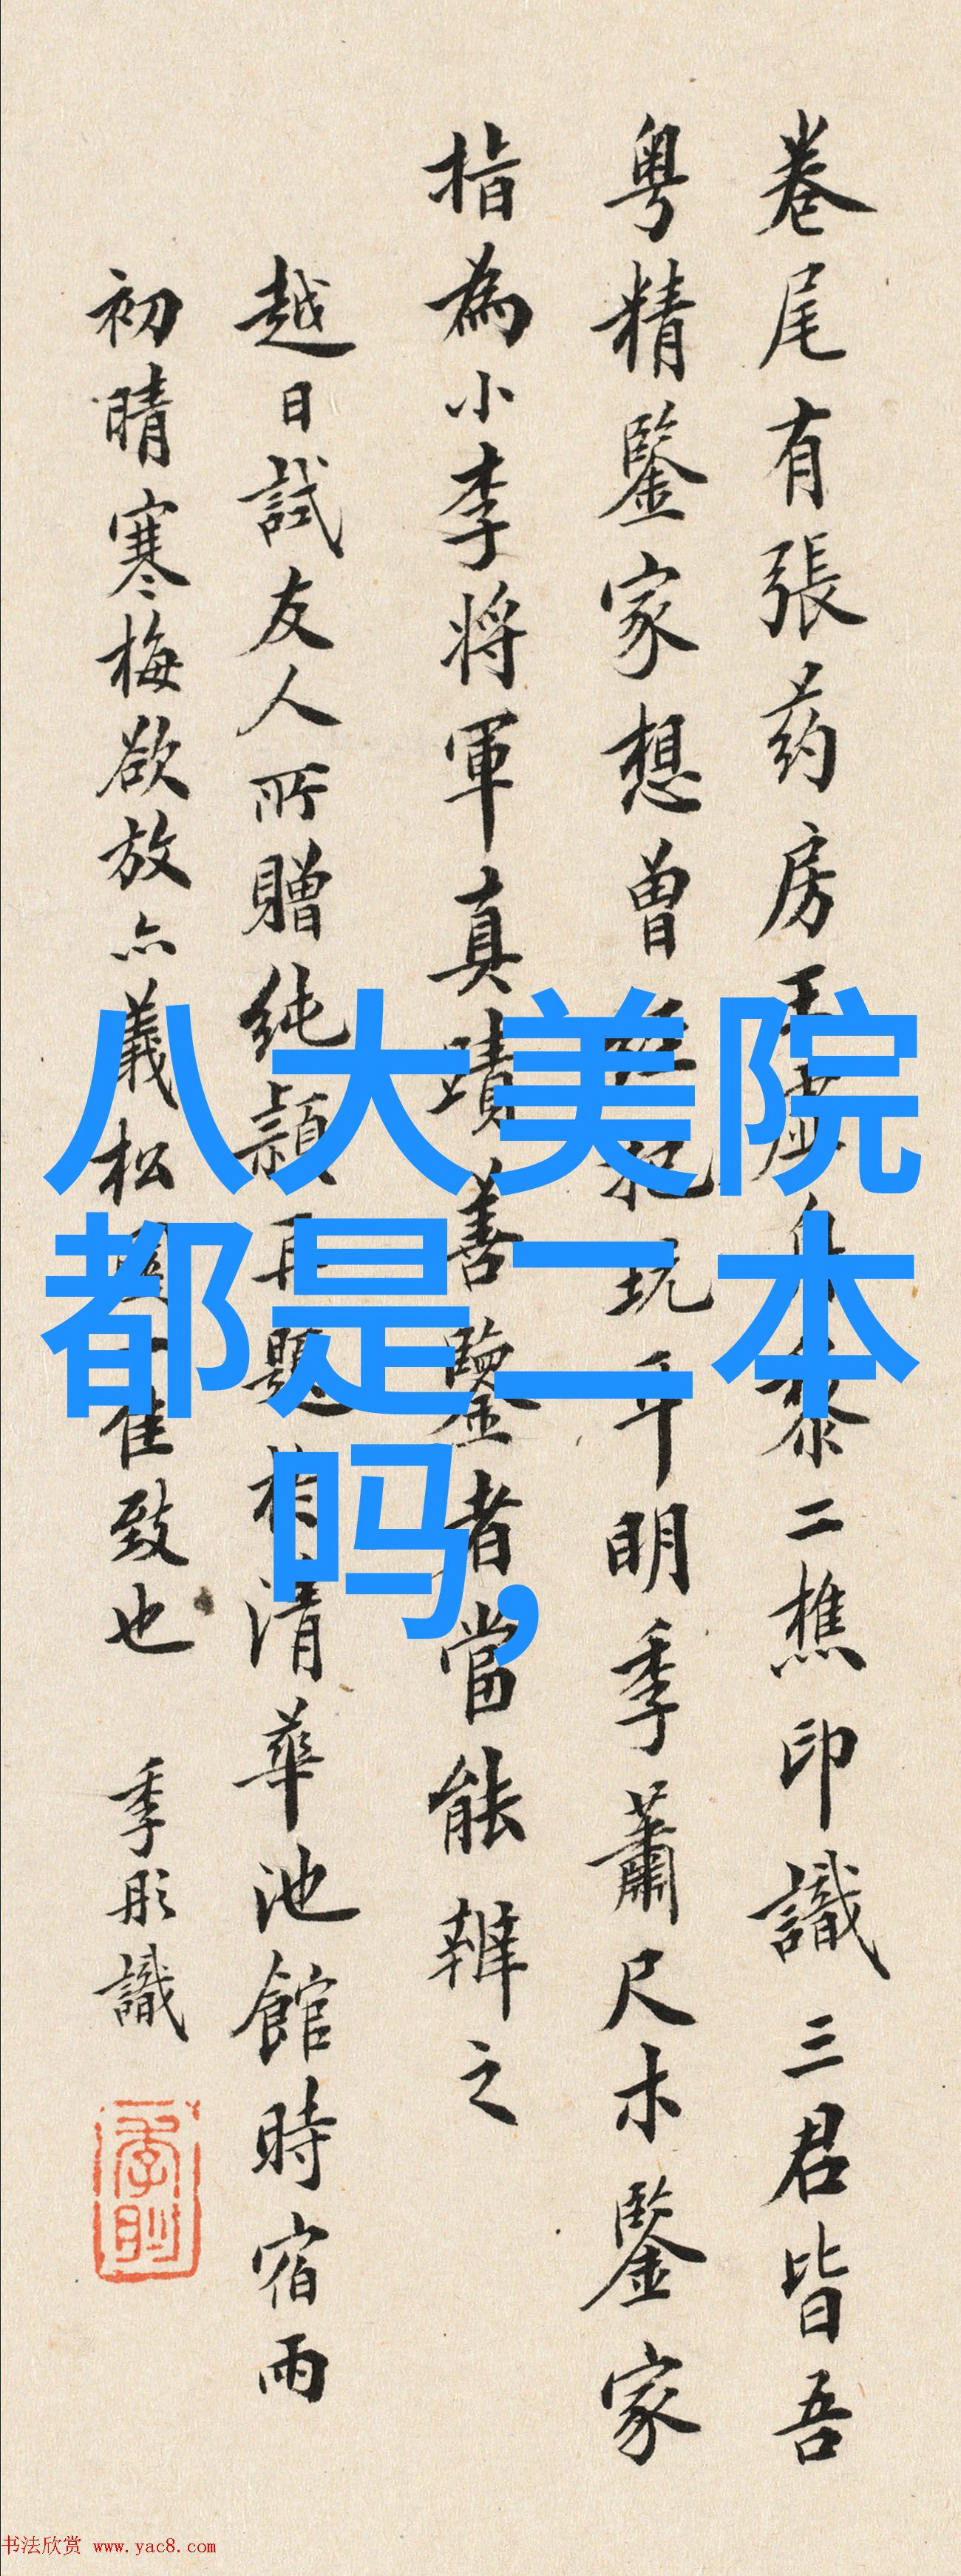 卷尾有張药房王虚舟黎二樵印識三君皆吾
粤精鑒家想曾經把玩乎明季蕭尺木鑒家
指為小李将軍真蹟善鑒者當能辨之
越日試友人所贈純穎再題栘清華池館時宿雨
初晴寒梅欲放亦義松一佳致也 季彤識
八大美院
都是二本
吗,
书法欣赏 www.yac8.com